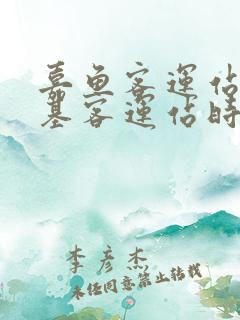 嘉鱼客運佔
基客運佔時
李彦杰
未经同意禁止转载